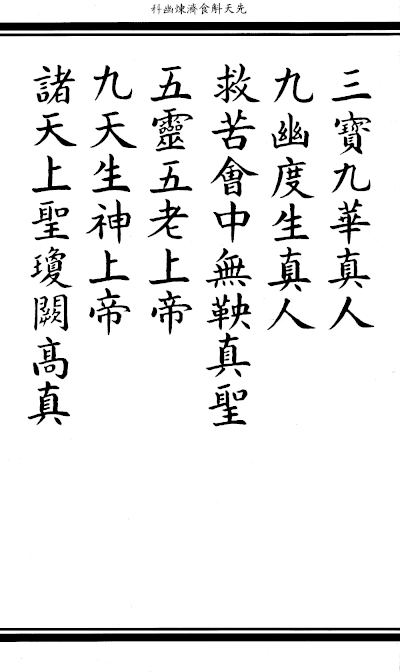 先天斛食濟煉幽科
三寶九華真人
九幽度生真人
救苦會中無鞅真聖
五靈五老上帝
九天生神上帝
諸天上聖瓊闕高真